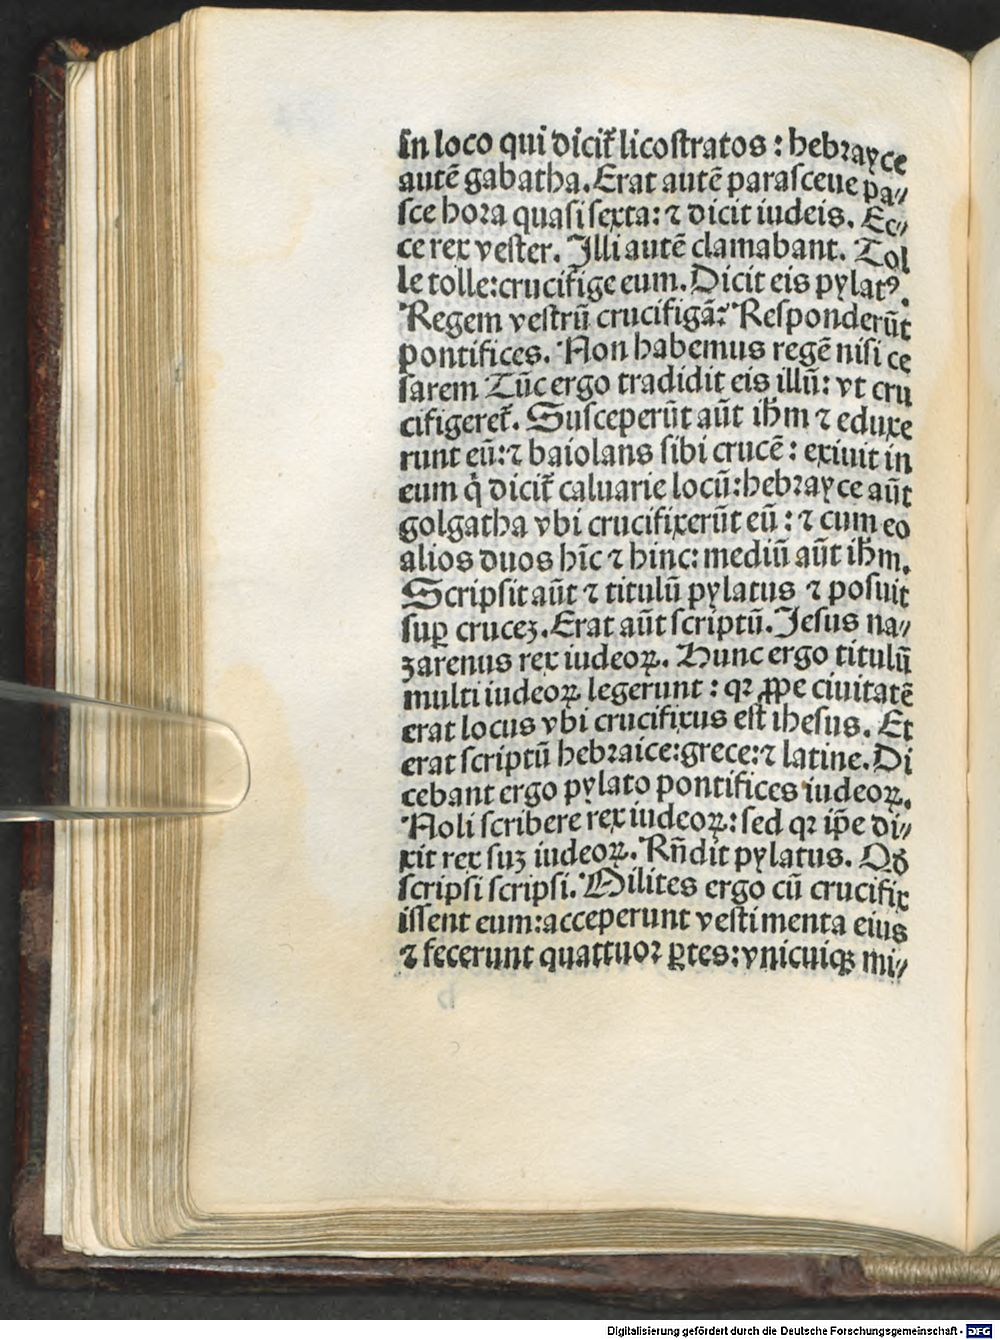 in loco qui dicit᷑ licostratos : hebrayce
autē gabatha. Erat autē parasceue pa⸗
sce hora quasi sexta: ⁊ dicit iudeis. Ec⸗
ce rex vester. Illi autē clamabant. Tol
le tolle: crucifige eum. Dicit eis pylatꝰ.
Regem vestrū crucifigā: Responderūt
pontifices. Non habemus regē nisi ce
sarem Tūc ergo tradidit eis illū: vt cru
cifigeret᷑. Susceperūt aūt ih̄m ⁊ eduxe
runt eū: ⁊ baiolans sibi crucē : exiuit in
eum q̇ dicit᷑ caluarie locū: hebrayce aūt
golgatha vbi crucifixerūt eū : ⁊ cum eo
alios duos hīc ⁊ hinc: mediū aūt ih̄m.
Scripsit aūt ⁊ titulū pylatus ⁊ posuit
suꝑ crucez. Erat aūt scriptū. Jesus na⸗
zarenus rex iudeoꝝ. Hunc ergo titulū
multi iudeoꝝ legerunt : qꝛ ꝓpe ciuitatē
erat locus vbi crucifixus est ihesus. Et
erat scriptū hebraice: grece: ⁊ latine. Di
cebant ergo pylato pontifices iudeoꝝ.
Noli scribere rex iudeoꝝ: sed qꝛ ip̄e di⸗
xit rex suꝫ iudeoꝝ. Rn̄dit pylatus. Qď
scripsi scripsi. Milites ergo cū crucifix
issent eum: acceperunt vestimenta eius
⁊ fecerunt quattuor ꝑtes: vnicuiqꝫ mi⸗
Digitalisierung gefördert durch die Deutsche Forschungsgemeinschaft - DFG